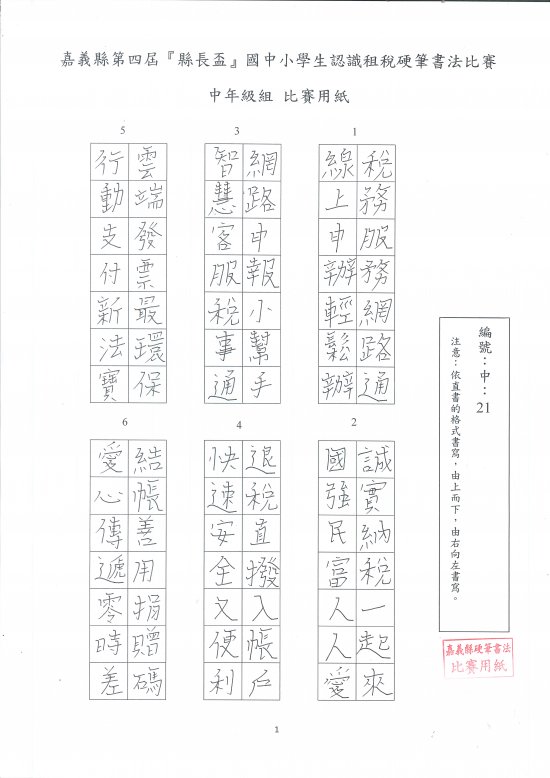 嘉義縣第四屆『縣長盃』國中小學生認識租稅硬筆書法比賽
中年級組 比賽用紙
1
稅務服務網路通
線上申辦輕鬆辦
2
誠實納稅一起來
國強民富人人愛
3
網路申報小幫手
智慧客服稅事通
4
退稅直撥入帳戶
快速安全又便利
5
雲端發票最環保
行動支付新法寶
6
結帳善用捐贈碼
愛心傳遞零時差
編號：中：21
注意：依直書的格式書寫，由上而下，由右向左書寫。
嘉義縣硬筆書法
比賽用紙
1